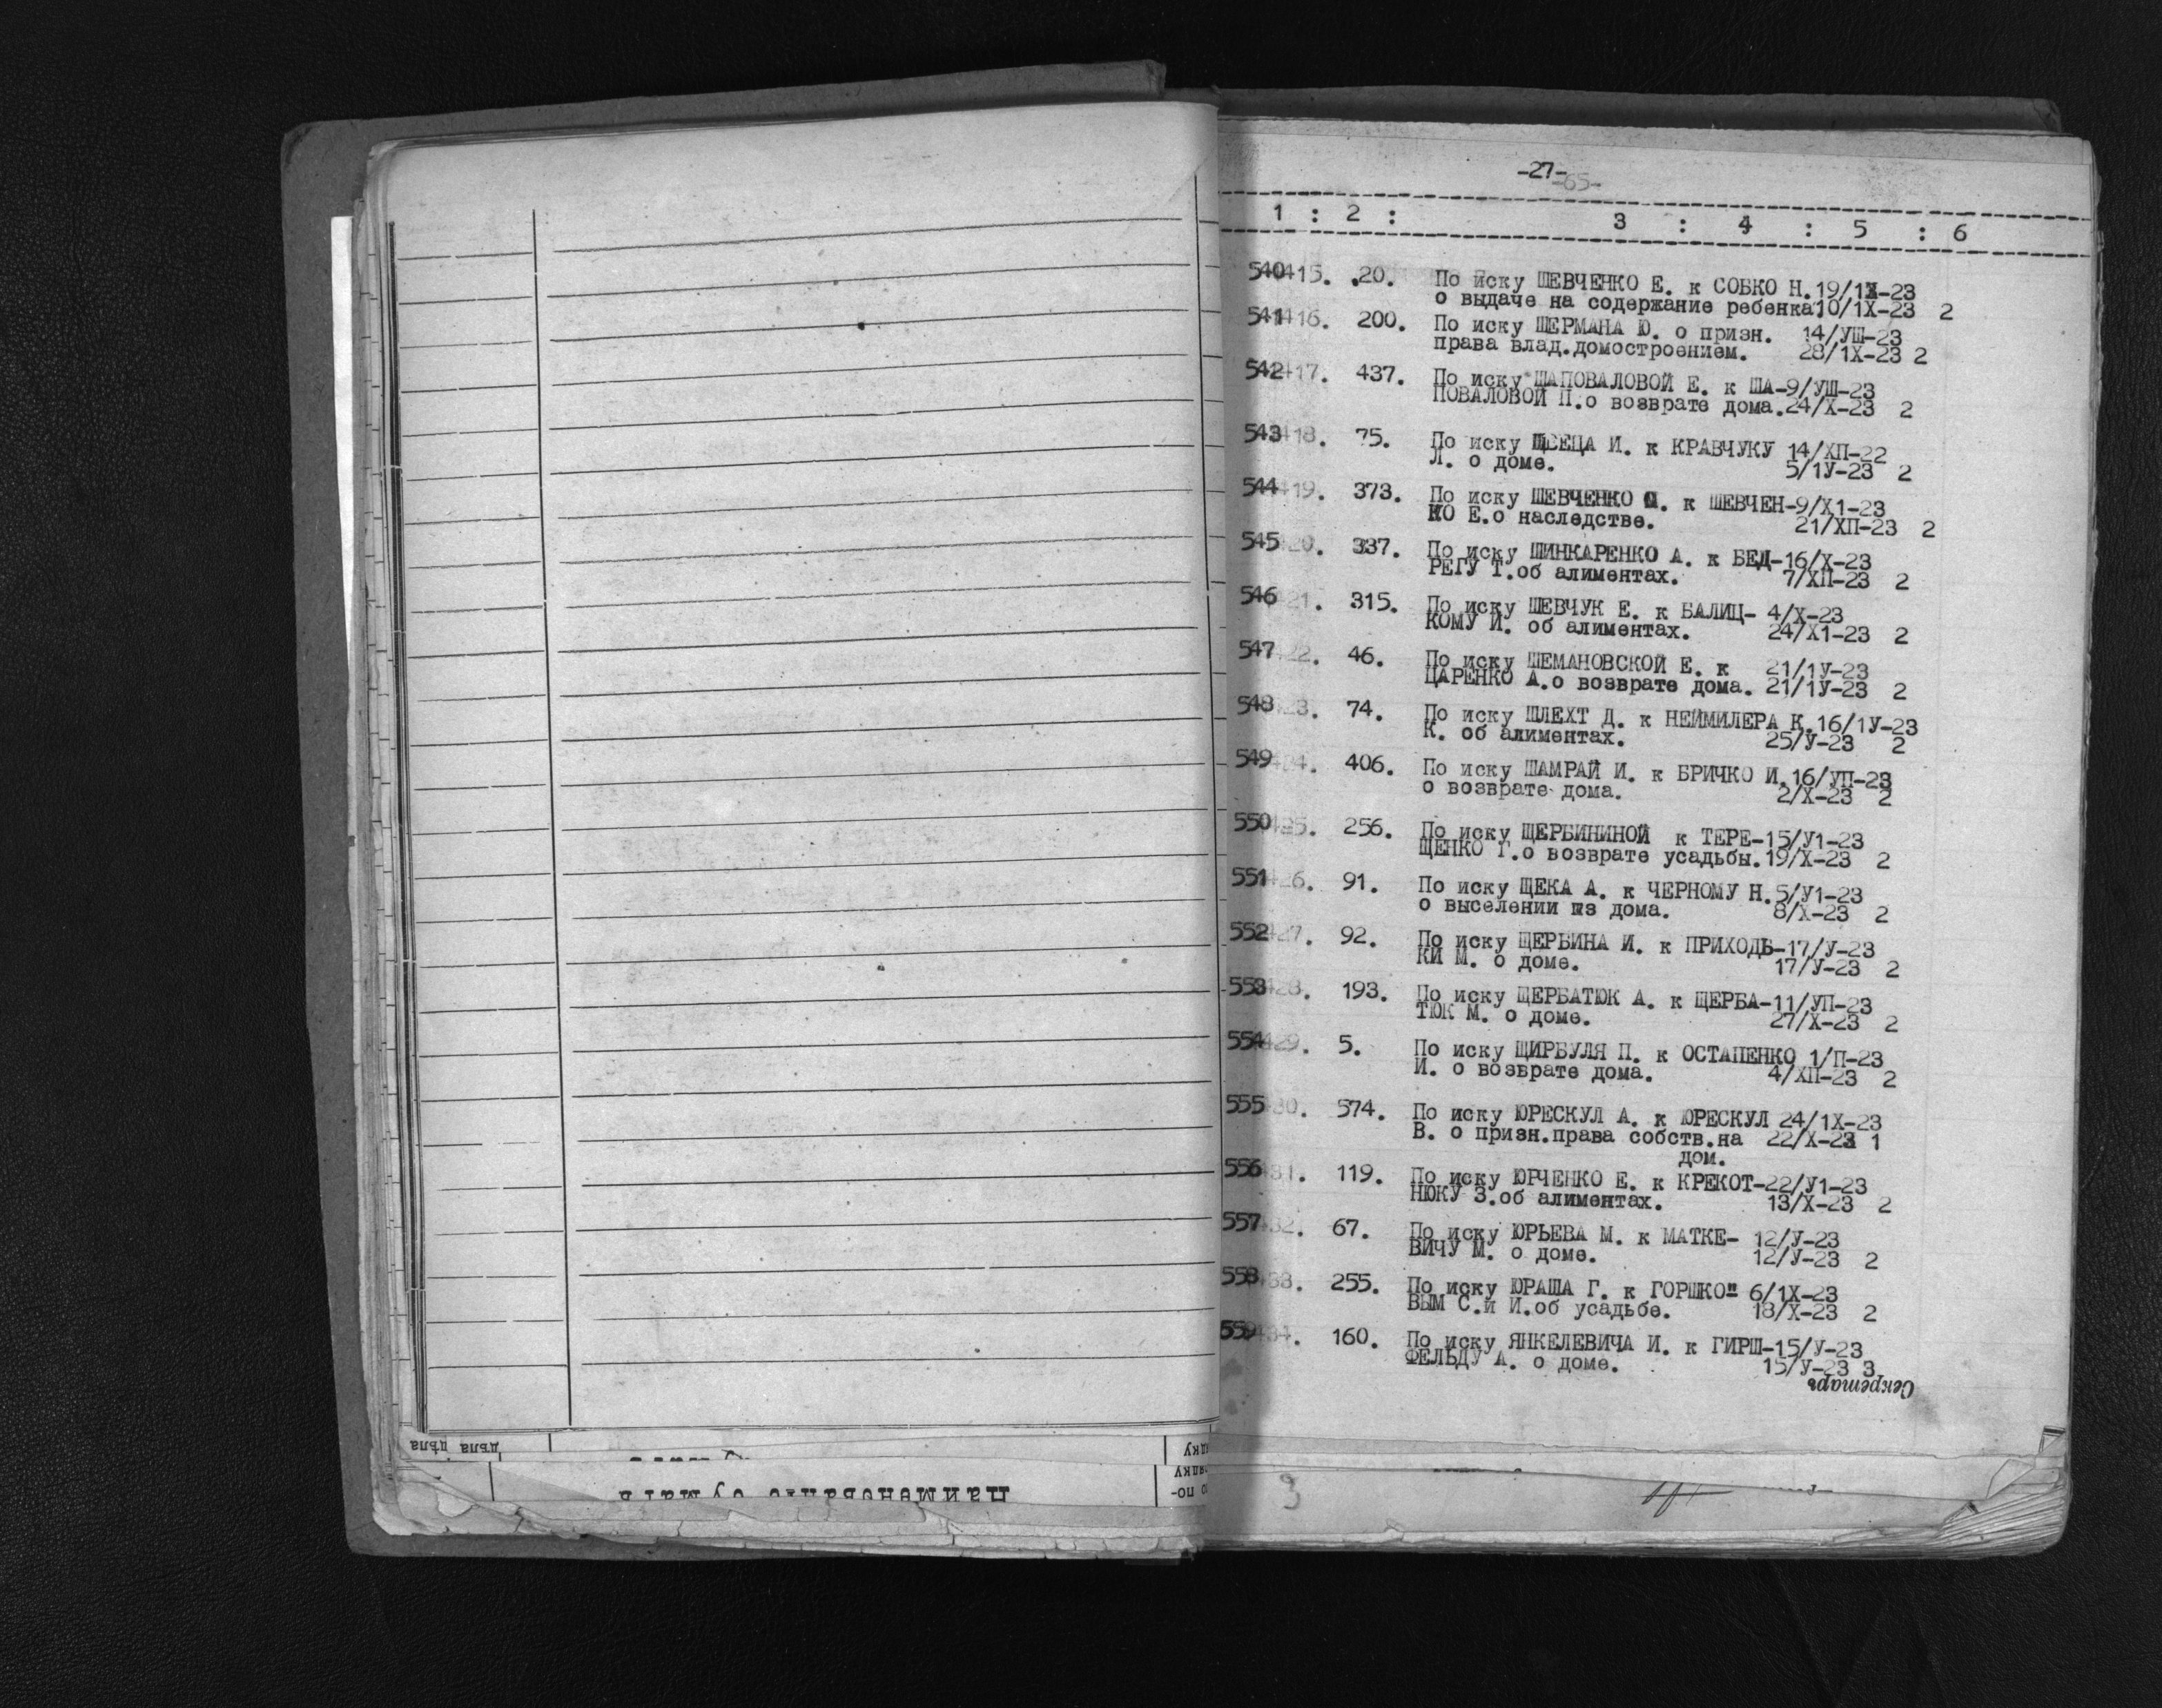 -27-
-65-
1 : 2 : 3 : 4 : 5 : 6
540 415. 20. По иску ШЕВЧЕНКО Е. к СОБКО Н. 19/1Х-23
о выдаче на содержание ребенка. 10/1Х-23 2
541 416. 200. По иску ШЕРМАНА Ю. о призн. 14/УШ-23
права влад.домостроением. 28/1Х-23 2
542 417. 437. По иску ШАПОВАЛОВОЙ Е. к ША-9/УШ-23
ПОВАЛОВОЙ П.о возврате дома.24/Х-23 2
543 418. 75. По иску ШВЕЦА И. к КРАВЧУКУ 14/ХП-22
Л. о доме. 5/1У-23 2
544 419. 373. По иску ШЕВЧЕНКО к ШЕВЧЕН-9/Х1-23
КО Е.о наследстве. 21/ХП-23 2
545 420. 337. По иску ШИНКАРЕНКО А. к БЕД-16/Х-23
РЕГУ Т.об алиментах. 7/ХП-23 2
546 421. 315. По иску ШЕВЧУК Е. к БАЛИЦ- 4/Х-23
КОМУ И. об алиментах. 24/Х1-23 2
547 422. 46. По иску ШЕМАНОВСКОЙ Е. к 21/1У-23
ЦАРЕНКО А.о возврате дома. 21/1У-23 2
548 423. 74. По иску ШЛЕХТ Д. к НЕЙМИЛЕРА К.16/1У-23
К. об алиментах. 25/У-23 2
549 424. 406. По иску ШАМРАЙ И. к БРИЧКО И.16/УП-23
о возврате дома. 2/Х-23 2
550 425. 256. По иску ЩЕРБИНИНОЙ к ТЕРЕ-15/У1-23
ЩЕНКО Г.о возврате усадьбы.19/Х-23 2
551 426. 91. По иску ЩЕКА А. к ЧЕРНОМУ Н.5/У1-23
о выселении из дома. 8/Х-23 2
552 427. 92. По иску ЩЕРБИНА И. к ПРИХОДЬ-17/У-23
КИ М. о доме. 17/У-23 2
553 428. 193. По иску ЩЕРБАТЮК А. к ЩЕРБА-11/УП-23
ТЮК М. о доме. 27/Х-23 2
554 429. 5. По иску ЩИРБУЛЯ П. к ОСТАПЕНКО 1/П-23
И. о возврате дома. 4/ХП-23 2
555 430. 574. По иску ЮРЕСКУЛ А. к ЮРЕСКУЛ 24/1Х-23
В. о призн.права собств.на 22/Х-23 1
дом.
556 431. 119. По иску ЮРЧЕНКО Е. к КРЕКОТ-22/У1-23
НЮКУ З.об алиментах. 13/Х-23 2
557 432. 67. По иску ЮРЬЕВА М. к МАТКЕ- 12/У-23
ВИЧУ М. о доме. 12/У-23 2
558 433. 255. По иску ЮРАША Г. к ГОРШКО- 6/1Х-23
ВЫМ С.и И.об усадьбе. 18/Х-23 2
559 434. 160. По иску ЯНКЕЛЕВИЧА И. к ГИРШ-15/У-23
ФЕЛЬДУ А. о доме. 15/У-23 3
Секретарь
дѣла дѣла
Наименованіе бумагъ
3